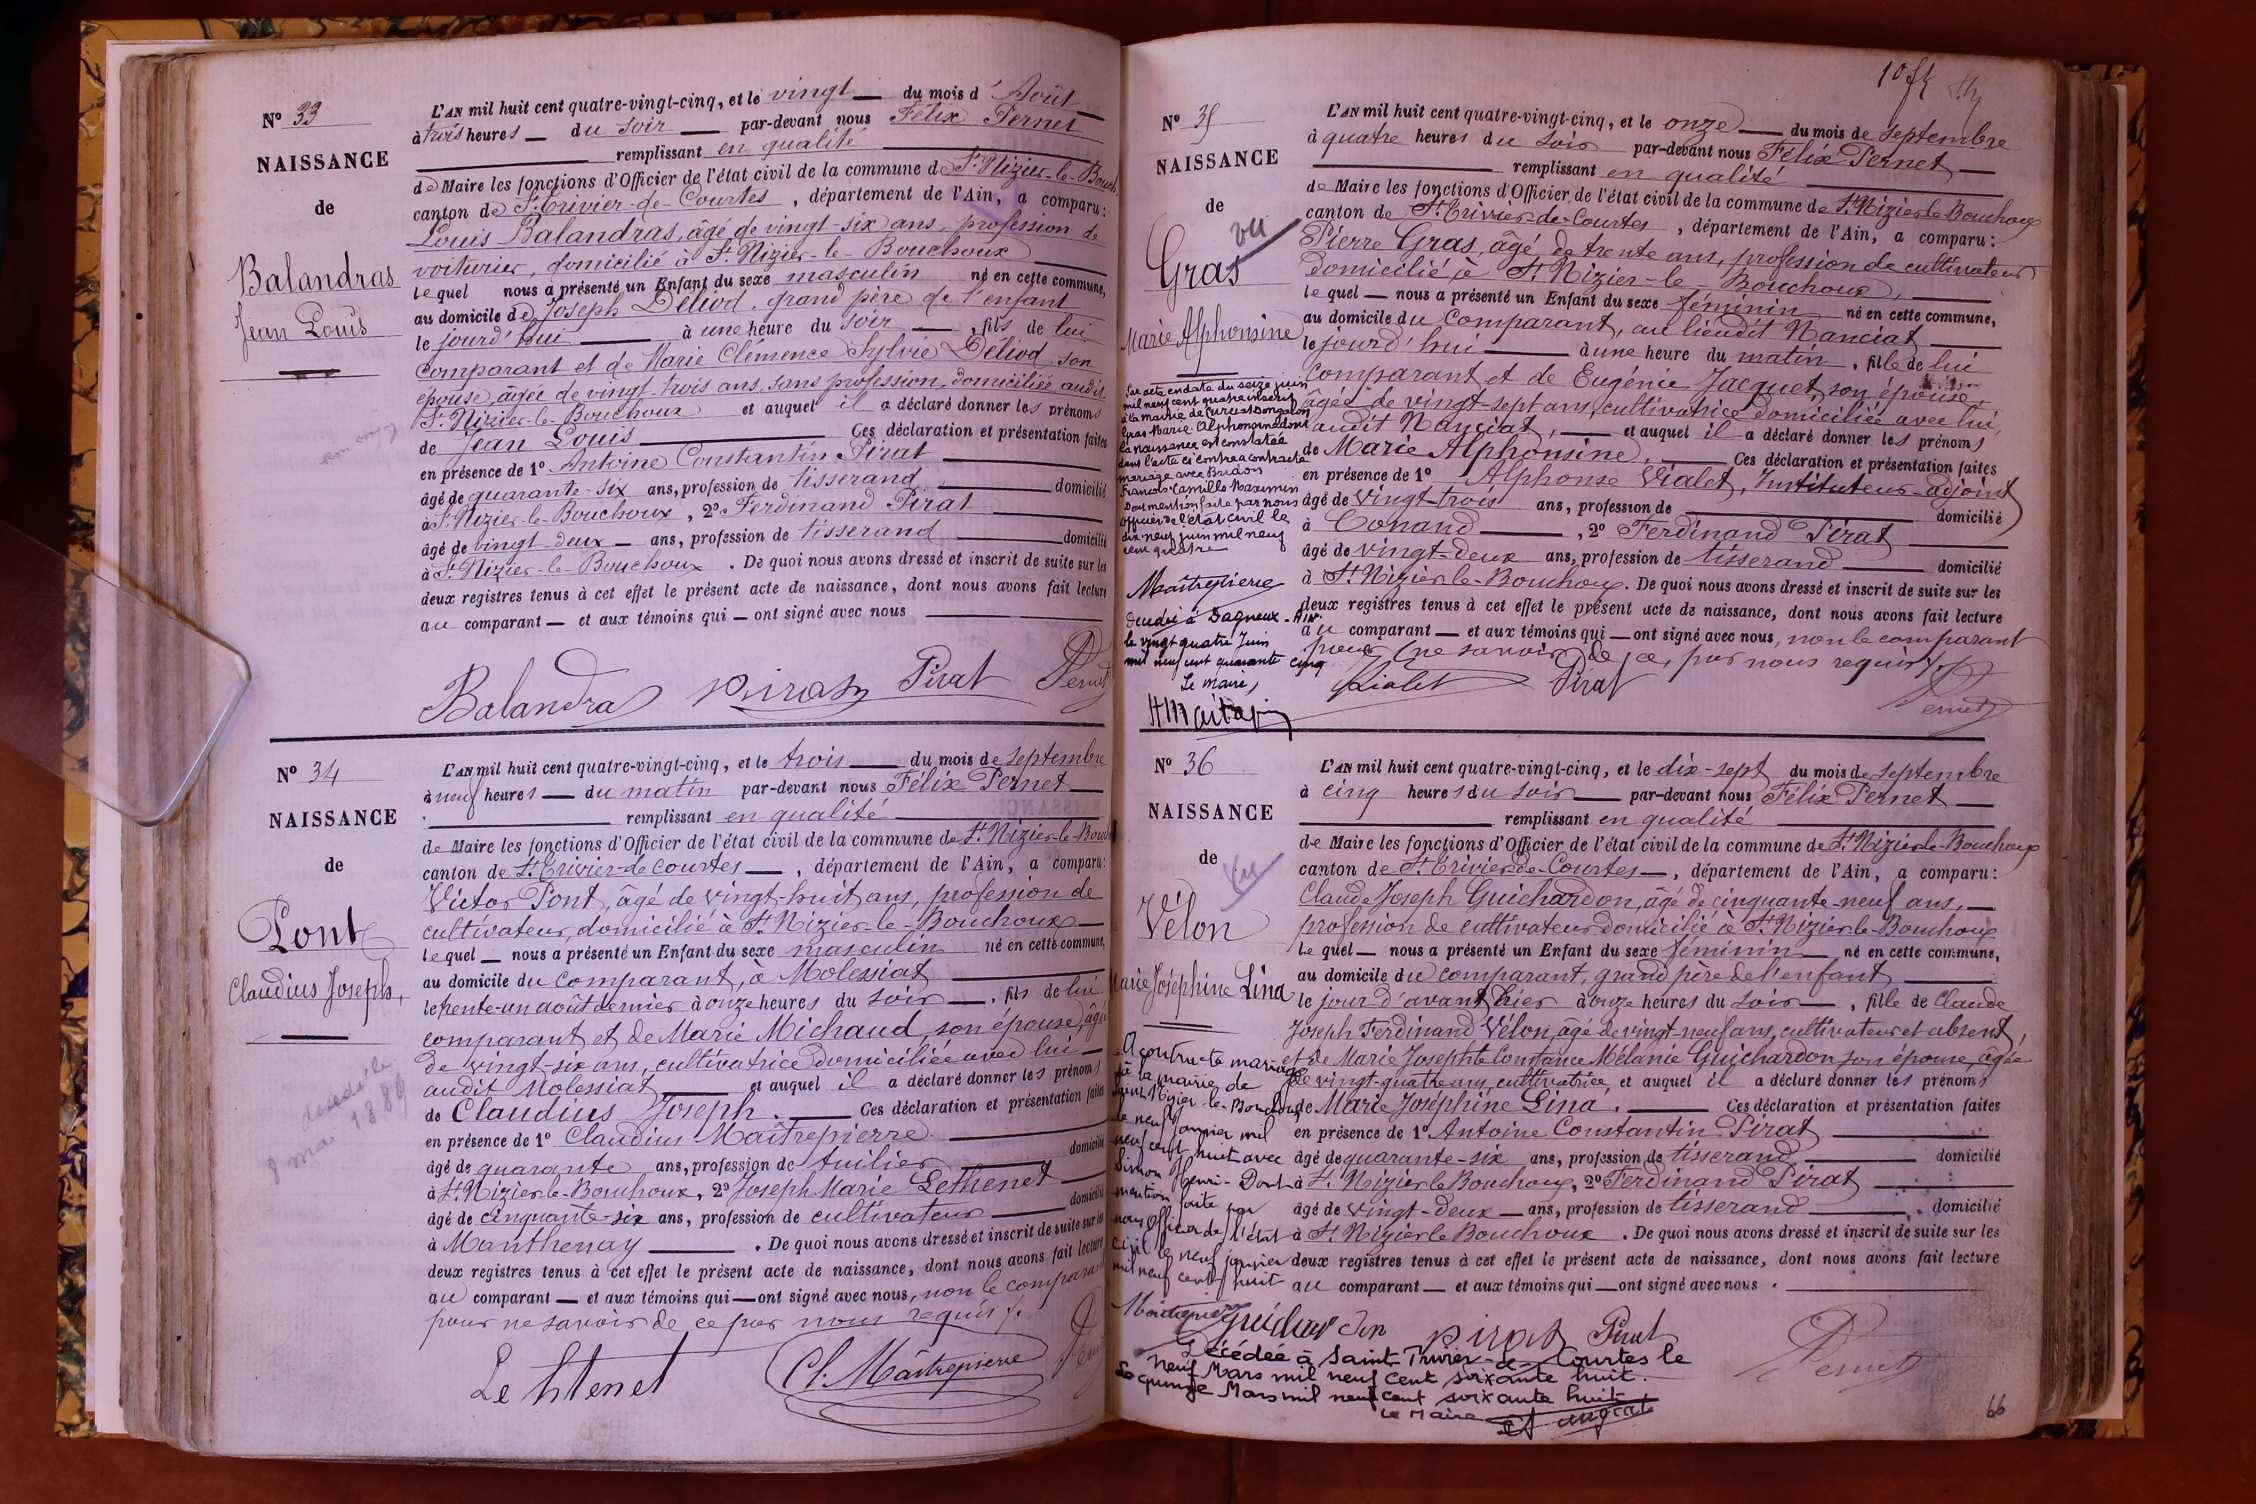 Nº 33
NAISSANCE
de
Balandras
Jean Louis
L'AN mil huit cent quatre-vingt-cinq, et le vingt du mois d'Août
à trois heures du soir par-devant nous Félix Pernet
remplissant en qualité
de Maire les fonctions d'Officier de l'état civil de la commune de St Nizier-le-Bouch.
canton de St Trivier-de-Courtes, département de l'Ain, a comparu:
Louis Balandras, âgé de vingt-six ans, profession de
voiturier, domicilié à St Nizier-le-Bouchoux
lequel nous a présenté un Enfant du sexe masculin né en cette commune,
au domicile de Joseph Déliod, grand père de l'enfant
le jourd'hui à une heure du soir, fils de lui
comparant et de Marie Clémence Sylvie Déliod son
épouse, âgée de vingt-trois ans, sans profession, domiciliée audit
St Nizier-le-Bouchoux et auquel il a déclaré donner les prénoms
de Jean Louis Ces déclaration et présentation faites
en présence de 1º Antoine Constantin Pirat
âgé de quarante-six ans, profession de tisserand domicilié
à St Nizier-le-Bouchoux, 2º Ferdinand Pirat
âgé de vingt-deux ans, profession de tisserand domicilié
à St Nizier-le-Bouchoux. De quoi nous avons dressé et inscrit de suite sur les
deux registres tenus à cet effet le présent acte de naissance, dont nous avons fait lecture
au comparant et aux témoins qui ont signé avec nous
Balandras Pirat Pirat Pernet
Nº 34
NAISSANCE
de
Pont
Claudius Joseph,
décédé le
9 mai 1889
L'AN mil huit cent quatre-vingt-cinq, et le trois du mois de septembre
à neuf heures du matin par-devant nous Félix Pernet
remplissant en qualité
de Maire les fonctions d'Officier de l'état civil de la commune de St Nizier-le-Bouch
canton de St Trivier-de-courtes, département de l'Ain, a comparu:
Victor Pont, âgé de vingt-huit ans, profession de
cultivateur, domicilié à St Nizier-le-Bouchoux
lequel nous a présenté un Enfant du sexe masculin né en cette commune,
au domicile du comparant, à Molessiat
le trente-un août dernier à onze heures du soir, fils de lui
comparant et de Marie Michaud, son épouse, âgée
de vingt-six ans, cultivatrice domiciliée avec lui
audit Molessiat et auquel il a déclaré donner les prénoms
de Claudius Joseph. Ces déclaration et présentation faites
en présence de 1º Claudius Maîtrepierre
âgé de quarante ans, profession de tuilier domicilié
à St Nizier-le-Bouchoux, 2º Joseph Marie Lethenet
âgé de cinquante-six ans, profession de cultivateur domicilié
à Manthenay. De quoi nous avons dressé et inscrit de suite sur les
deux registres tenus à cet effet le présent acte de naissance, dont nous avons fait lecture
au comparant et aux témoins qui ont signé avec nous, non le comparant
pour ne savoir de ce par nous requis.
Le thenet Cl. Maîtrepierre
Nº 35
NAISSANCE
de
vu
Gras
Marie Alphonsine
Par acte en date du seize juin
mil neuf cent quatre inscrit
à la mairie de
Gras Marie Alphonsine dont
la naissance est constatée
dans l'acte ci contre a contracté
mariage avec
François Camille Maximin
Dont mention faite par nous
officier de l'état civil le
dix neuf juin mil neuf
cent quatre
Maîtrepierre
Décédée à Dagneux - Ain
le vingt quatre Juin
mil neuf cent quarante cinq
Le Maire,
L'AN mil huit cent quatre-vingt-cinq, et le onze du mois de septembre
à quatre heures du soir par-devant nous Félix Pernet
remplissant en qualité
de Maire les fonctions d'Officier de l'état civil de la commune de St Nizier le Bouchoux
canton de St Trivier-de-Courtes, département de l'Ain, a comparu:
Pierre Gras, âgé de trente ans, profession de cultivateur
domicilié à St Nizier-le-Bouchoux,
lequel nous a présenté un Enfant du sexe féminin né en cette commune,
au domicile du comparant, au lieudit Nanciat
le jourd'hui à une heure du matin, fille de lui
comparant et de Eugénie Jacquet, son épouse,
âgée de vingt-sept ans, cultivatrice domiciliée avec lui,
audit Nanciat, et auquel il a déclaré donner les prénoms
de Marie Alphonsine. Ces déclaration et présentation faites
en présence de 1º Alphonse Vialet, Instituteur-adjoint
âgé de vingt-trois ans, profession de domicilié
à Conand, 2º Ferdinand Pirat
âgé de vingt-deux ans, profession de tisserand domicilié
à St Nizier le-Bouchoux. De quoi nous avons dressé et inscrit de suite sur les
deux registres tenus à cet effet le présent acte de naissance, dont nous avons fait lecture
au comparant et aux témoins qui ont signé avec nous, non le comparant
pour ne savoir de ce, par nous requis.
Vialet Pirat Pernet
Nº 36
NAISSANCE
de
Vu
Vélon
Marie Joséphine Lina
A contracté mariage
à la mairie de
Saint Nizier-le-Bouchoux
le neuf janvier mil
neuf cent huit avec
Simon Henri - Dont
mention faite par
nous Officier de l'état
civil le neuf janvier
mil neuf cent huit
Maîtrepierre
L'AN mil huit cent quatre-vingt-cinq, et le dix-sept du mois de septembre
à cinq heures du soir par-devant nous Félix Pernet
remplissant en qualité
de Maire les fonctions d'Officier de l'état civil de la commune de St Nizier-le-Bouchoux
canton de St Trivier-de-Courtes, département de l'Ain, a comparu:
Claude Joseph Guichardon, âgé de cinquante-neuf ans,
profession de cultivateur domicilié à St Nizier-le-Bouchoux
lequel nous a présenté un Enfant du sexe féminin né en cette commune,
au domicile du comparant, grand père de l'enfant
le jour d'avant hier à onze heures du soir, fille de Claude
Joseph Ferdinand Vélon, âgé de vingt-neuf ans, cultivateur et absent,
et de Marie Josephte Constance Mélanie Guichardon son épouse, âgée
de vingt-quatre ans, cultivatrice, et auquel il a déclaré donner les prénoms
de Marie Joséphine Lina. Ces déclaration et présentation faites
en présence de 1º Antoine Constantin Pirat
âgé de quarante-six ans, profession de tisserand domicilié
à St Nizier le Bouchoux, 2º Ferdinand Pirat
âgé de vingt-deux ans, profession de tisserand domicilié
à St Nizier le Bouchoux. De quoi nous avons dressé et inscrit de suite sur les
deux registres tenus à cet effet le présent acte de naissance, dont nous avons fait lecture
au comparant et aux témoins qui ont signé avec nous.
Guichardon Pirat Pirat Pernet
Décédée à Saint-Trivier-de-Courtes le
neuf Mars mil neuf cent soixante huit.
Le quinze Mars mil neuf cent soixante huit.
Le Maire
66